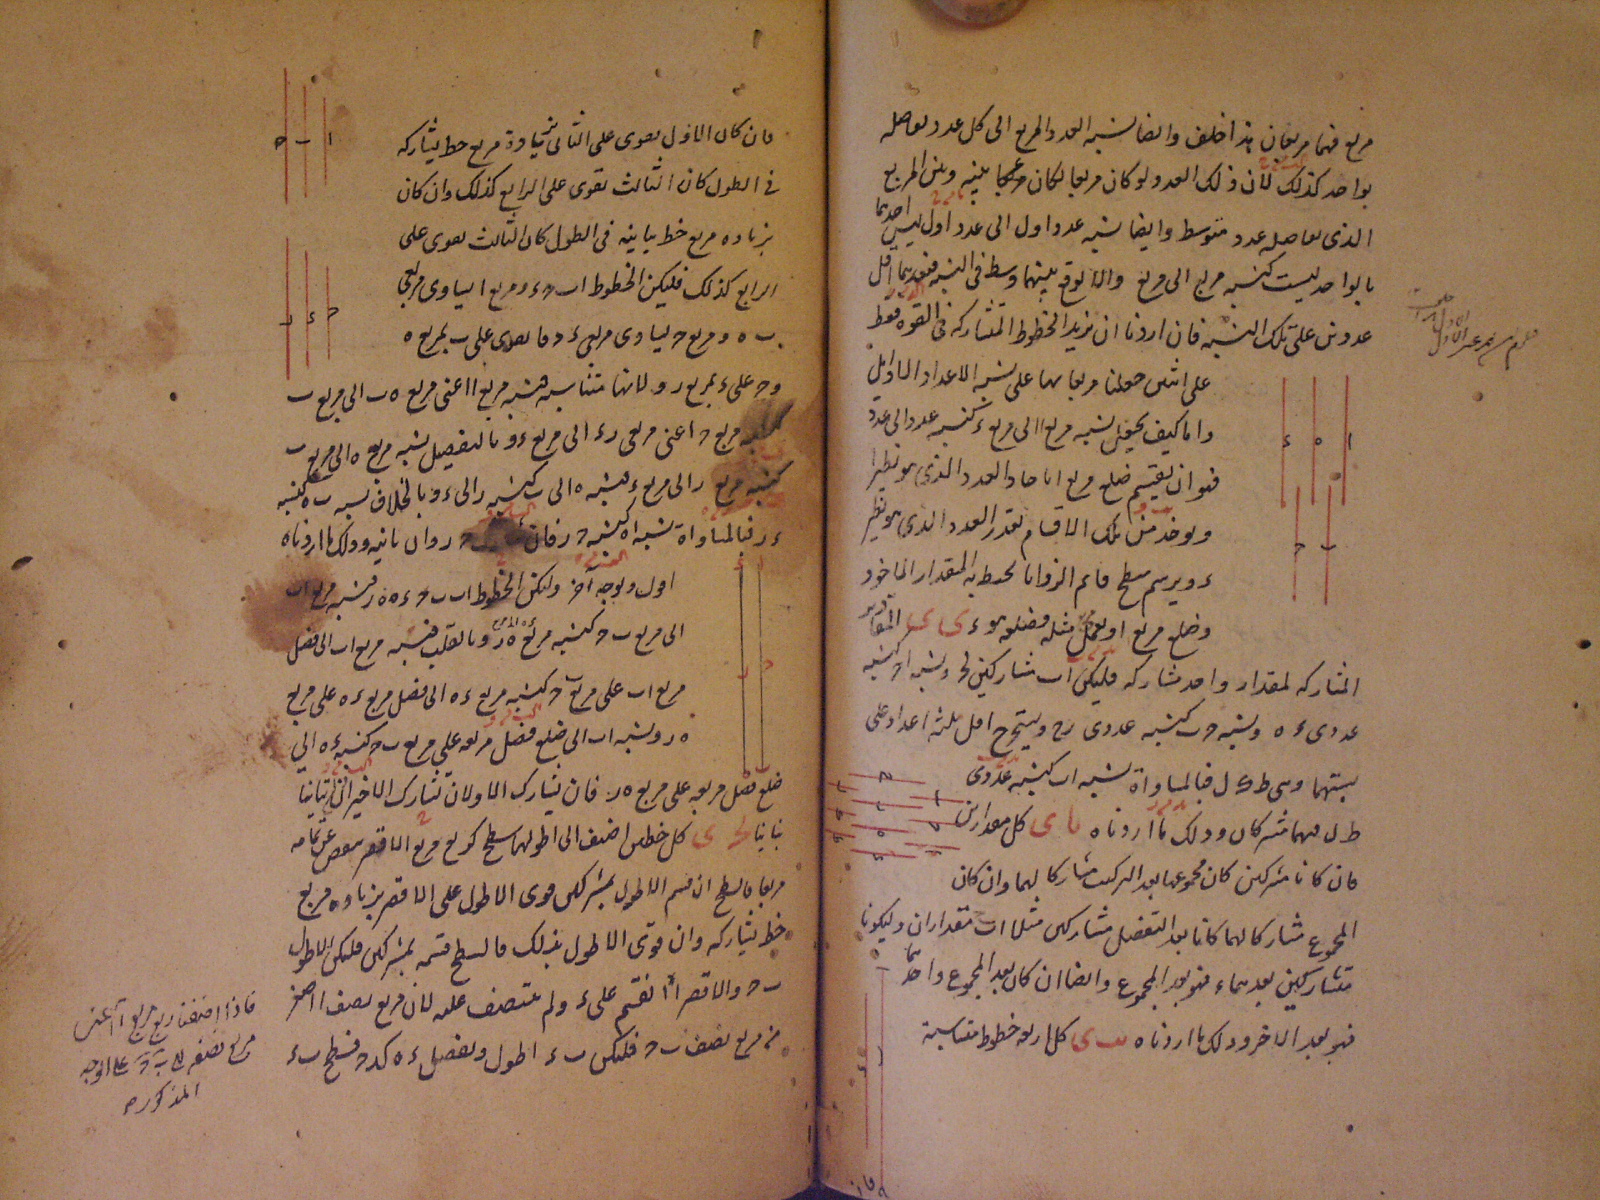 مربع فهما مربعان هذا خلف وايضا نسبة العدد المربع الى كل عدد يفاصله
بواحد كذلك لان ذلك العدد لو كان مربعا لكان بينه وبين المربع
الذى يفاصله عدد متوسط وايضا نسبة عدد اول الى عدد اول ليس احدهما
بالواحد ليست كنسبة مربع الى مربع والا لوقع بينهما وسط فى النسبة فيعدهما اقل
عددين على تلك النسبة فان اردنا ان نزيد الخطوط المتشاركة فى القوة فقط
على اثنين جعلنا مربعاتها على نسبة الاعداد الاوايل
واما كيف يجعل نسبة مربع ا الى مربع ء كنسبة عدد الى عدد
فهو ان يقسم ضلع مربع ا باحاد العدد الذى هو نظيرا
ويوخذ من تلك الاقسام بقدر العدد الذى هو نظير
ء ويرسم سطح قائم الزوايا يحيط به المقدار الماخوذ
وضلع مربع ا ويعمل مثله وضلعه هو ء ى المقادير
المشاركة لمقدار واحد مشاركة فليكن ا ب مشاركين لح ونسبة ا ح كنسبة
عددى ء ه ونسبة ح ب كنسبة عددى ر ح ويستخرج اقل ثلثة اعداد على
نسبتهما وهى ط ك ل فبالمساواة نسبة ا ب كنسبة عددى
ط ل فهما مشتركان وذلك ما اردناه يا ى كل مقدارين
فان كانا مشتركين كان مجموعهما بعد التركيب مشاركا لهما وان كان
المجموع مشاركا لهما كانا بعد التفصيل مشاركين مثلا ا ب مقداران وليكونا
متشاركين يعدهما ء فهو يعد المجموع وايضا ان كان يعد المجموع واحدهما
فهو يعد الاخر وذلك ما اردناه يب ى كل اربعة خطوط متناسبة
فان كان الاول يقوى على الثانى بزيادة مربع خط يشاركه
فى الطول كان الثالث يقوى على الرابع كذلك وان كان
بزيادة مربع خط يباينه فى الطول كان الثالث يقوى على
الرابع كذلك فليكن الخطوط ا ب ح ء ومربع ا يساوى مربعى
ب ه ومربع ح يساوى مربعى ء ر فا يقوى على ب بمربع ه
وح على ء بمربع ر ولانها متناسبة فنسبة مربع ا اعنى مربعى ه ب الى مربع ب
كنسبة مربع ح اعنى مربعى ر ء الى مربع ء وبالتفصيل نسبة مربع ه الى مربع ب
كنسبة مربع ر الى مربع ء فنسبة ه الى ب كنسبة ر الى ء وبالخلاف نسبة ب ه كنسبة
ء ر فبالمساواة نسبة ا ه كنسبة ح ر فان ح ر وان باينه وذلك ما اردناه
اول وبوجه آخر وليكن الخطوط ا ب ب ح ء ه ه ر فنسبة مربع ا ب
الى مربع ب ح كنسبة مربع ء ه الى مربع ه ر وبالقلب فنسبة مربع ا ب الى فضل
مربع ا ب على مربع ب ح كنسبة مربع ء ه الى فضل مربع ء ه على مربع
ه ر ونسبة ا ب الى ضلع فضل مربعه على مربع ب ح كنسبة ء ه الى
ضلع فضل مربعه على مربع ه ر فان تشارك الاولان تشارك الاخيران وان تباينا
تباينا يج ى كل خطين اضيف الى اطولهما سطح كربع مربع الاقصر ينقص عن تمامه
مربعا فالسطح ان قسم الاطول بمشتركين قوى الاطول على الاقصر بزيادة مربع
خط يشاركه وان قوى الاطول بذلك فالسطح قسمه بمشتركين فليكن الاطول
ب ح والاقصر ا انقسم على ء ولم ينتصف عليه لان مربع نصف ا اصغر
من مربع نصف ب ح فليكن ب ء اطول ونفصل ء ه كـ ء ح فسطح ب ء
فاذا اضفنا ربع مربع ا اعنى
مربع نصفه الى ب ح على الوجه
المذكور